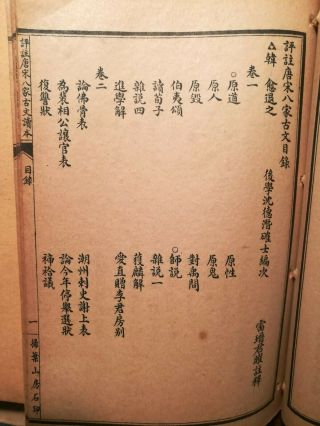 評註唐宋八家古文目錄
後學沈德潛確士編次
雷瑨君曜註釋
△韓愈退之
卷一
○原道
原性
原人
原鬼
原毀
對禹問
伯夷頌
○師說
讀荀子
雜說一
雜說四
獲麟解
進學解
愛直贈李君房別
卷二
論佛骨表
潮州刺史謝上表
為裴相公讓官表
論今年停舉選狀
復讐狀
禘祫議
評註唐宋八家古文讀本
目錄
一
掃葉山房石印